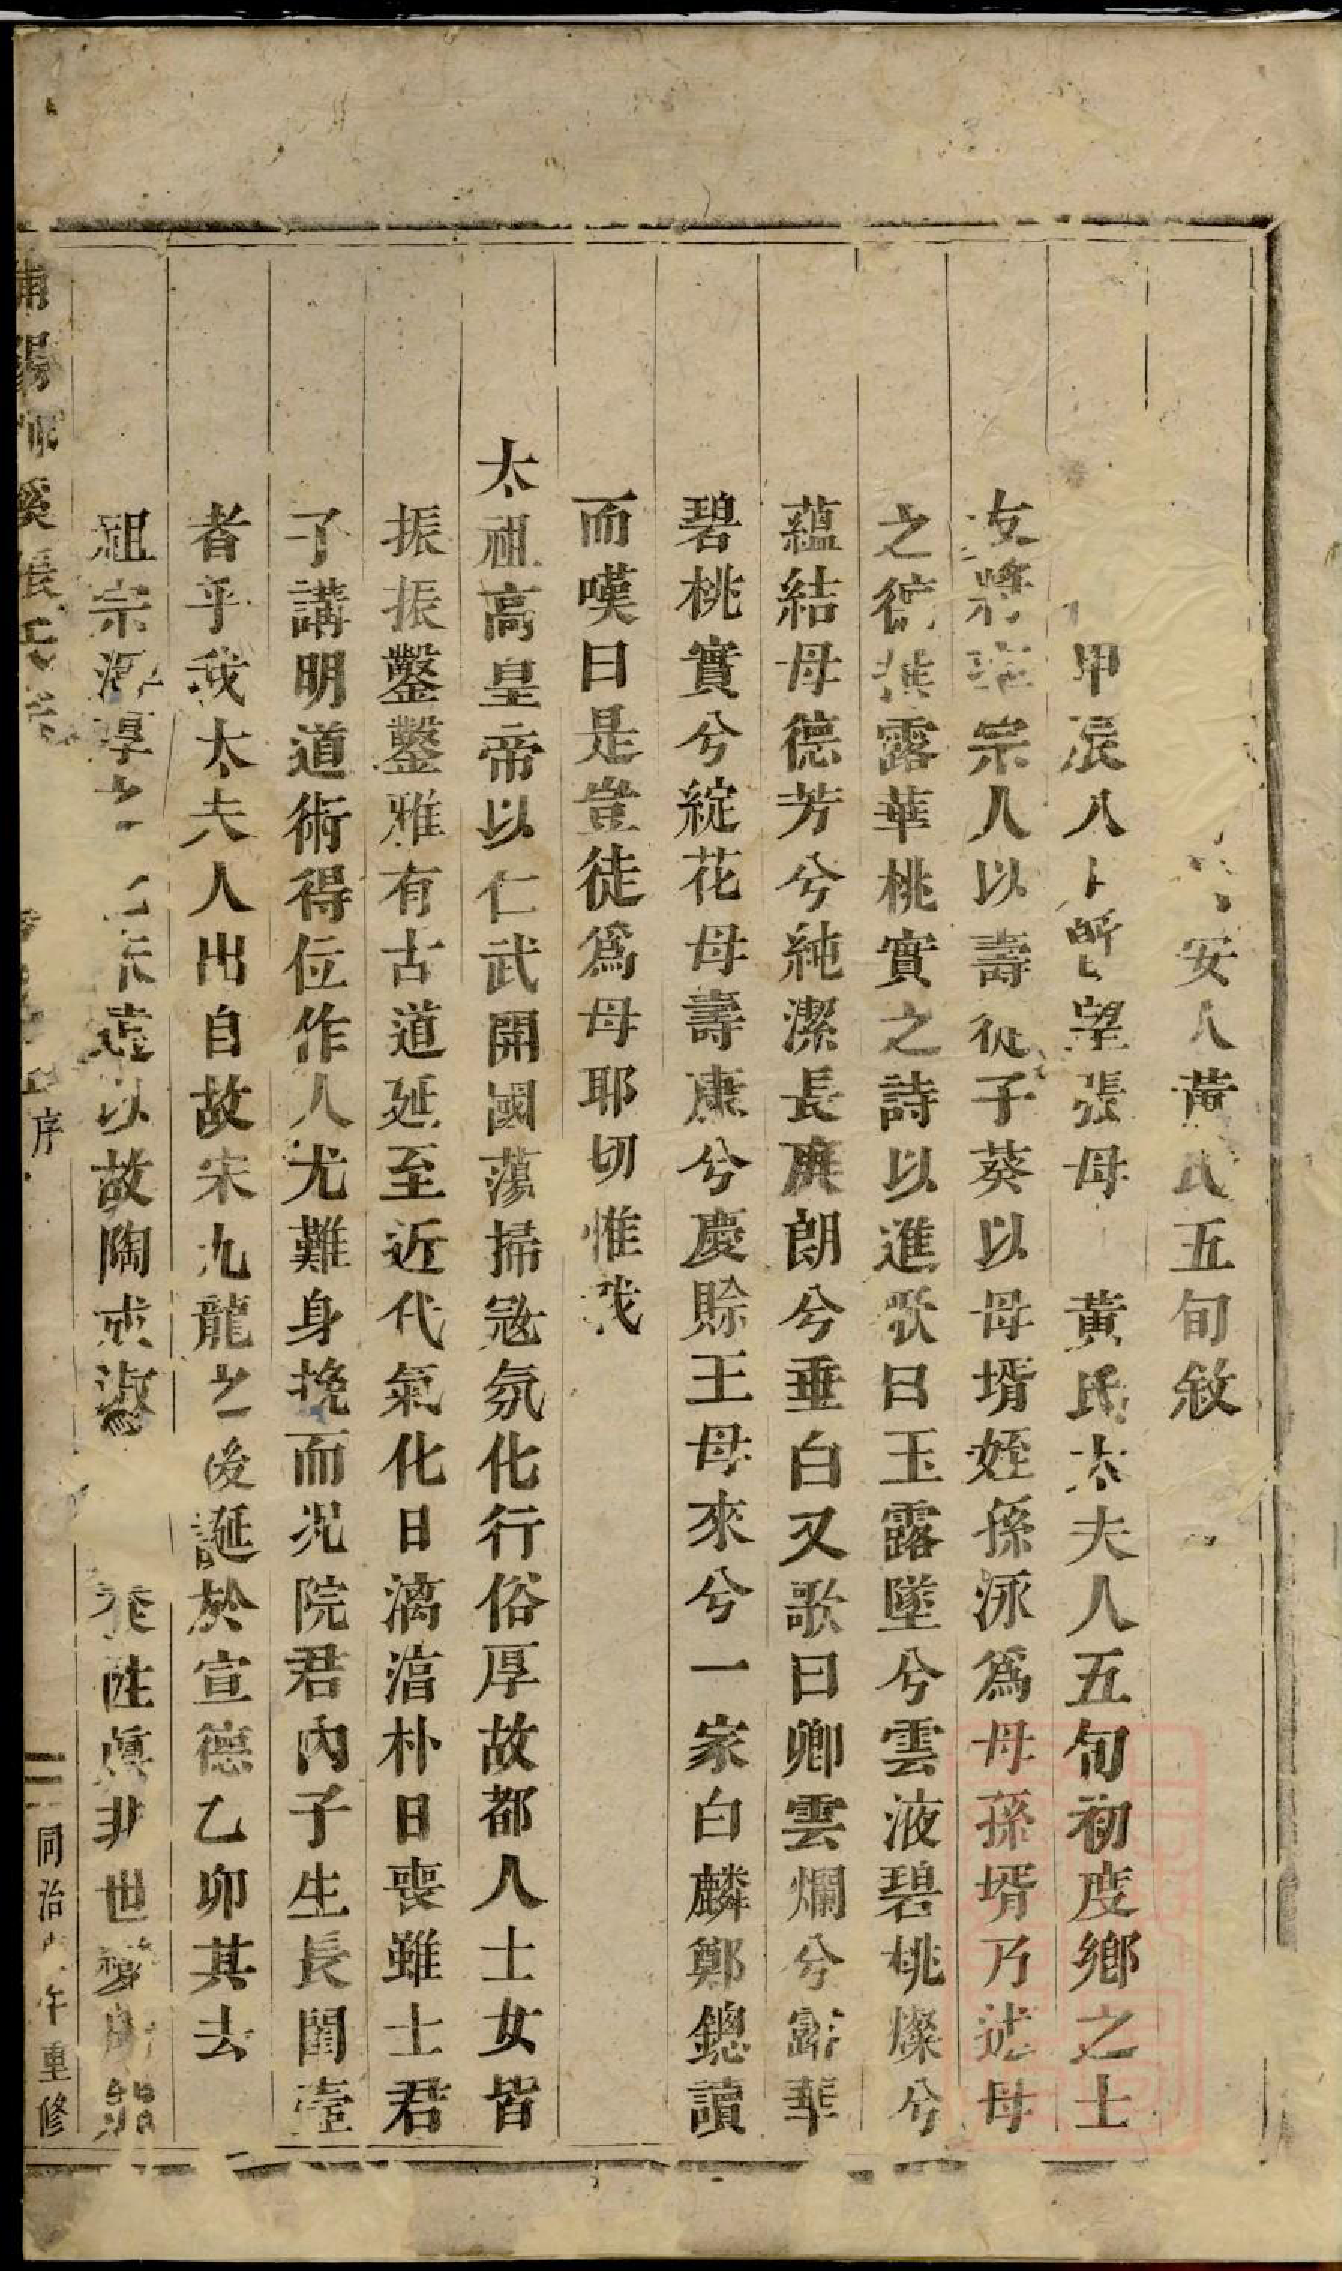 安人黃氏五旬敘
甲辰八月既望張母黃氏太夫人五旬初度鄉之士
友將宗人以壽從子葵以母壻姪孫泳爲母孫壻乃述母
之德撰露華桃實之詩以進歌曰玉露墜兮雲液碧桃燦兮
蘊結母德芳兮純潔長庚朗兮垂白又歌曰卿雲爛兮露華
碧桃實兮綻花母壽康兮慶賒王母來兮一家白麟鄭鏓讀
而嘆曰是豈徒爲母耶切惟我
太祖高皇帝以仁武開國蕩掃寇氛化行俗厚故都人士女皆
振振鑿鑿雅有古道延至近代氣化日漓湻朴日喪雖士君
子講明道術得位作人尤難身挽而况院君內子生長閨壼
者乎我太夫人出自故宋九龍之後誕於宣德乙卯其去
祖宗湻厚之未遠以故陶成淑養性眞非世
陽溪張氏序
同治午重修